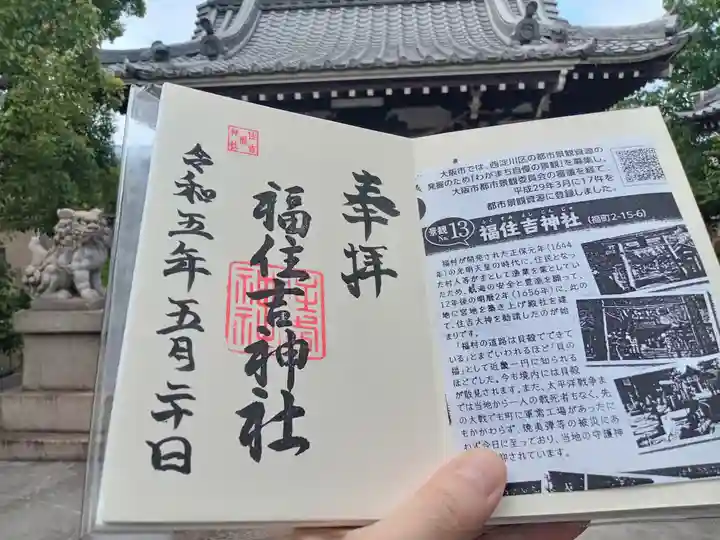 奉拝
福住吉神社
令和五年五月二十日
大阪市では、西淀川区の都市景観資源の
発掘のため「わがまち自慢の景観」を募集し、
大阪市都市景観委員会の審議を経て
平成29年3月に17件を
都市景観資源に登録しました。
景観
No.13
ふくすみよしじんじゃ
福住吉神社
(福町2-15-6)
福村が開発された正保元年(1644
年)の光明天皇の時代に、住民となっ
た村人等がまとして漁業を業としてい
たため、航海の安全と豊漁を願って、
12年後の明暦2年(1656年)に、此の
地に宮地を築き上げ殿社を建
て、住吉大神を勧請したのが始
まりです。
「福村の道路は貝殻でできて
いる」とまでいわれるほど「貝の
福」として近畿一円に知られる
ほどでした。今も境内には貝殻
が散見されます。また、太平洋戦争ま
では当地から一人の戦死者もなく、先
の大戦でも町に軍需工場があったに
もかかわらず、焼夷弾等の被災にあ
わず今日に至っており、当地の守護神
仰されています。